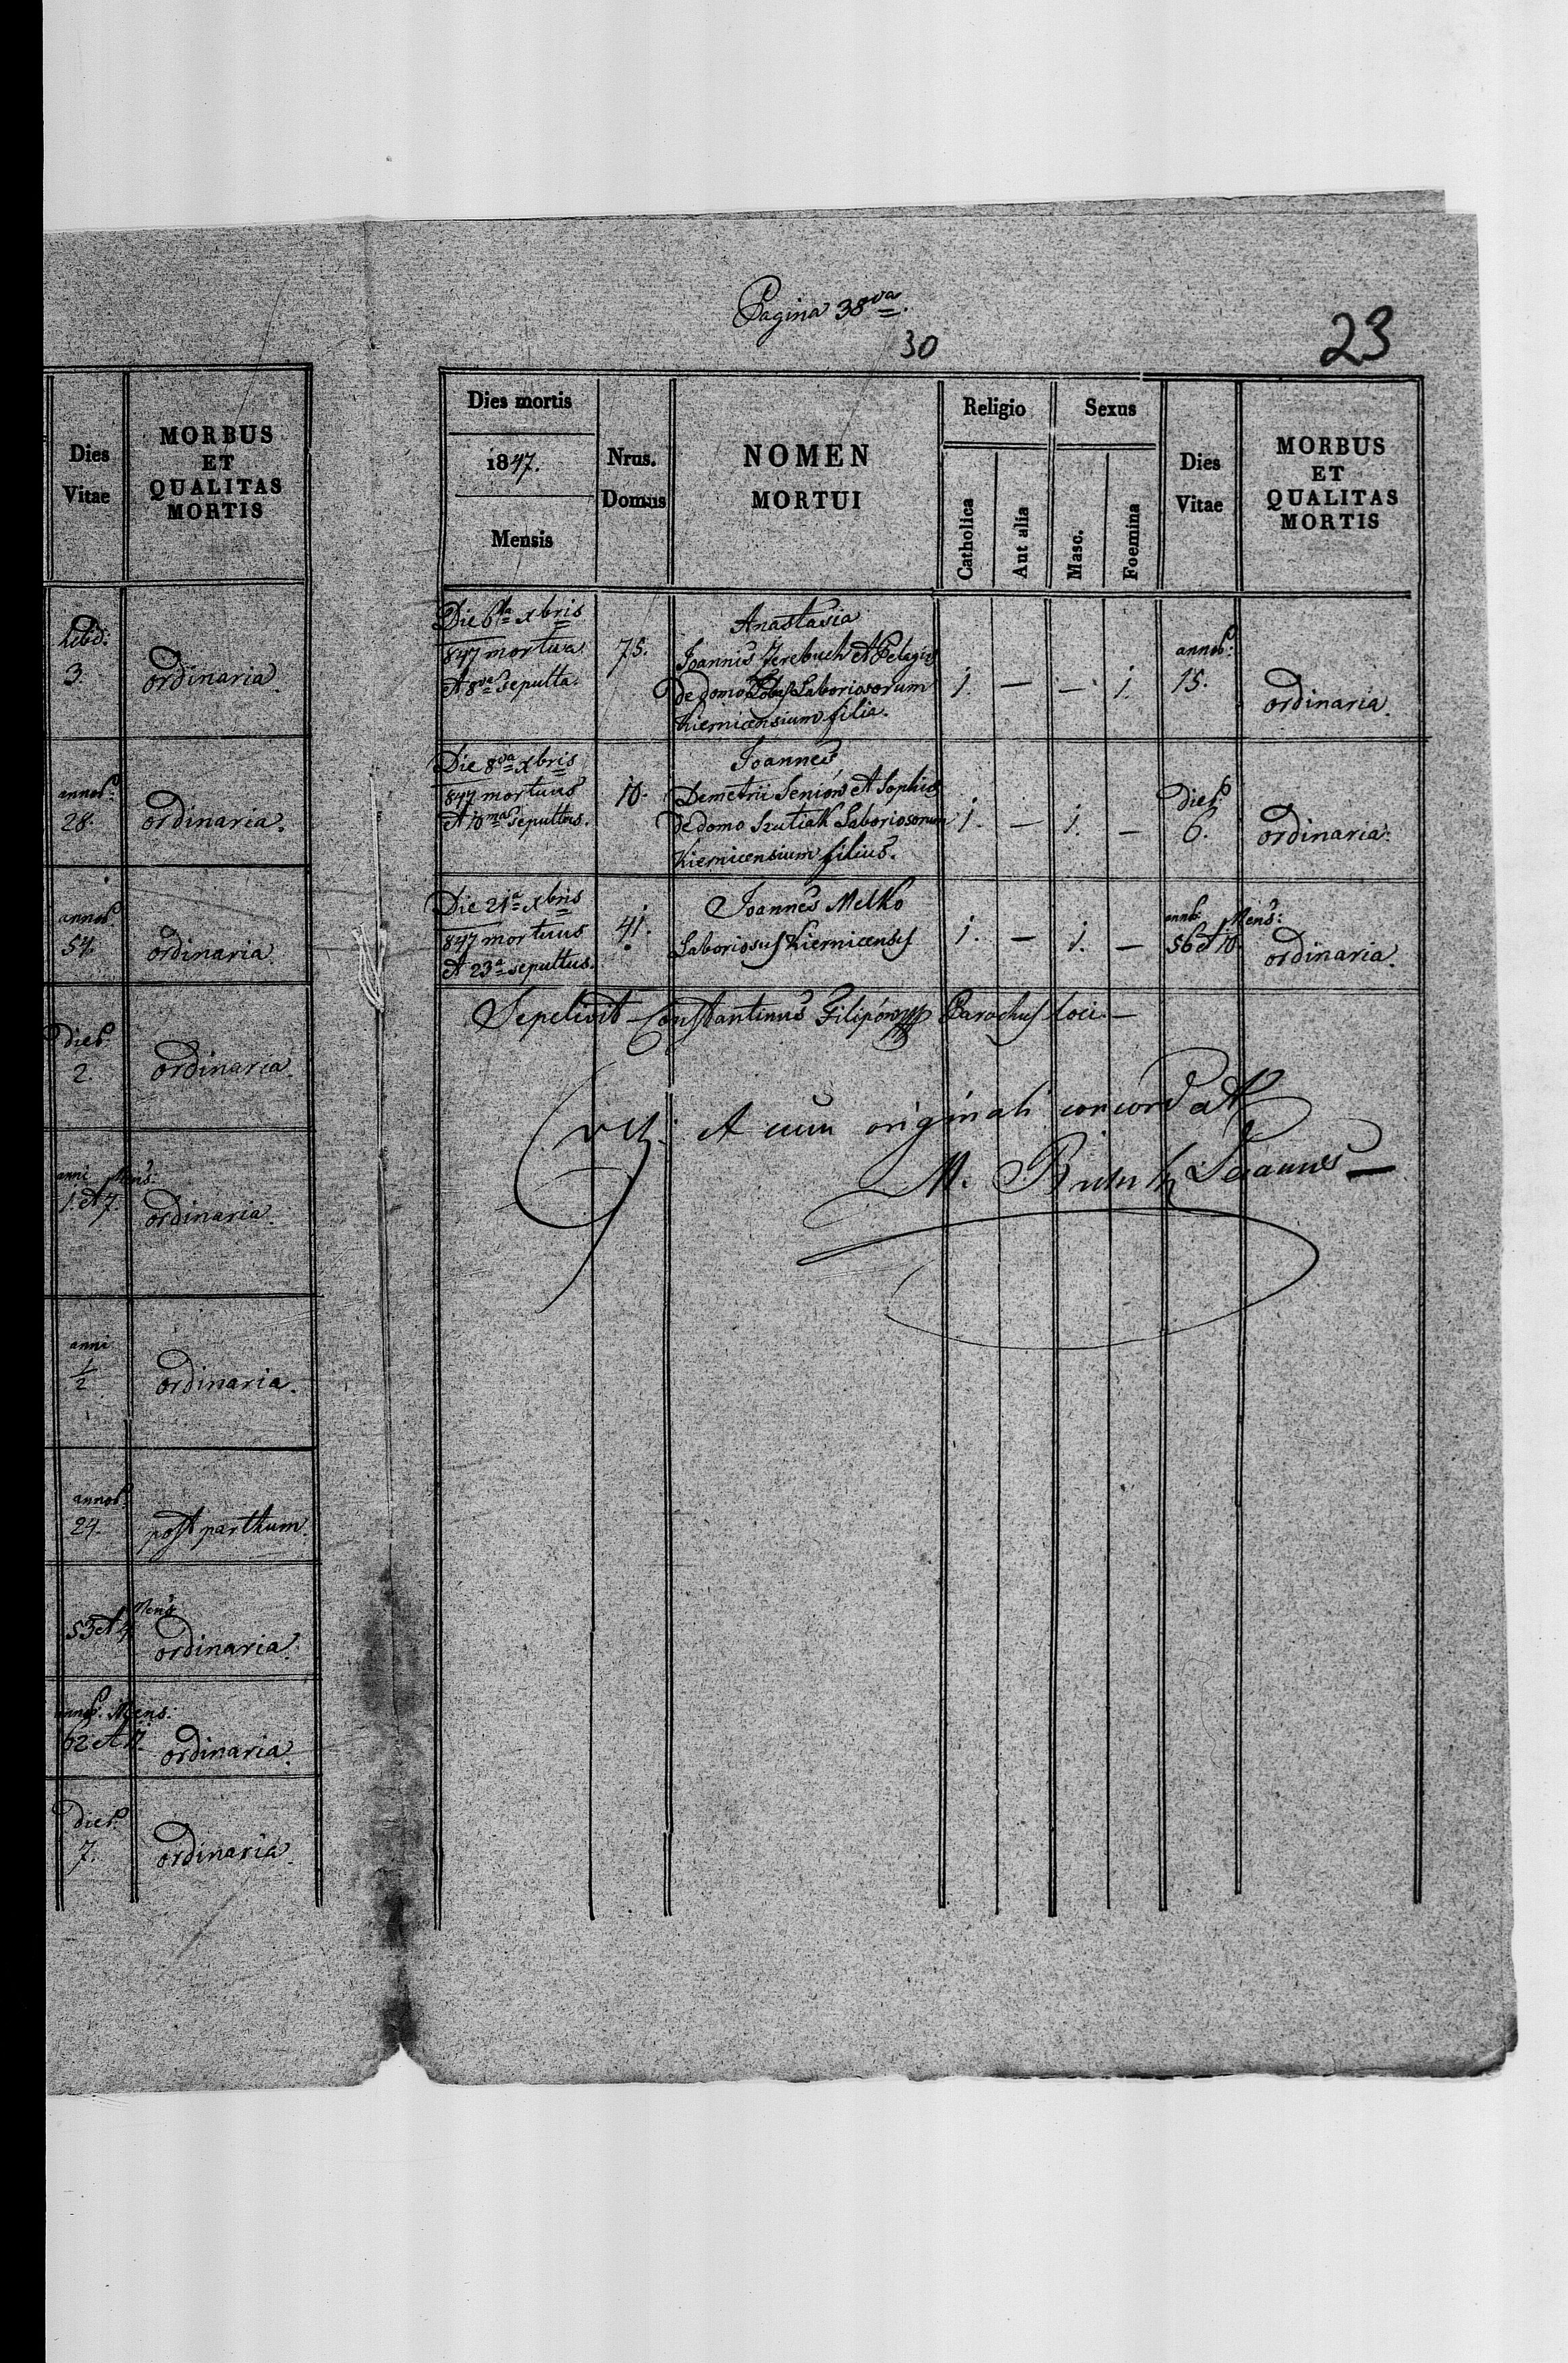 Dies
Vitae
MORBUS
ET
QUALITAS
MORTIS
hebd:
3.
ordinaria.
annor:
28.
ordinaria.
annor:
54.
ordinaria.
dier:
2.
ordinaria.
anni Mens:
1. et 7.
ordinaria.
anni
1/2
ordinaria.
annor:
24.
post parthum.
Mens:
53 et 4
ordinaria.
annor: Mens:
62 et
ordinaria.
dier:
7.
ordinaria.
Pagina 38va.
30
23
Dies mortis
1847.
Mensis
Nrus.
Domus
NOMEN
MORTUI
Religio
Catholica
Aut alia
Sexus
Masc.
Foemina
Dies
Vitae
MORBUS
ET
QUALITAS
MORTIS
Die 6ta Xbris
847 mortua
et 8va Sepulta.
75.
Anastasia
Joannis Jerebuch et Pelagiae
de domo Laboriosorum
Kiernicensium filia.
1. — — 1.
annor:
15.
ordinaria.
Die 8va Xbris
847 mortuus
et 10ma Sepultus.
10.
Joannes
Demetrii Seniów et Sophiae
de domo Szutiak Laboriosorum
Kiernicensium filius.
1. — 1. —
dier:
6.
ordinaria.
Die 21a Xbris
847 mortuus
et 23a sepultus.
41.
Joannes Melko
Laboriosus Kiernicensis
1. — 1. —
annor: Mens:
56 et 10
ordinaria.
Sepelivit Constantinus Filipowicz Parochus loci —
et cum originali concordat
M. Joannes —